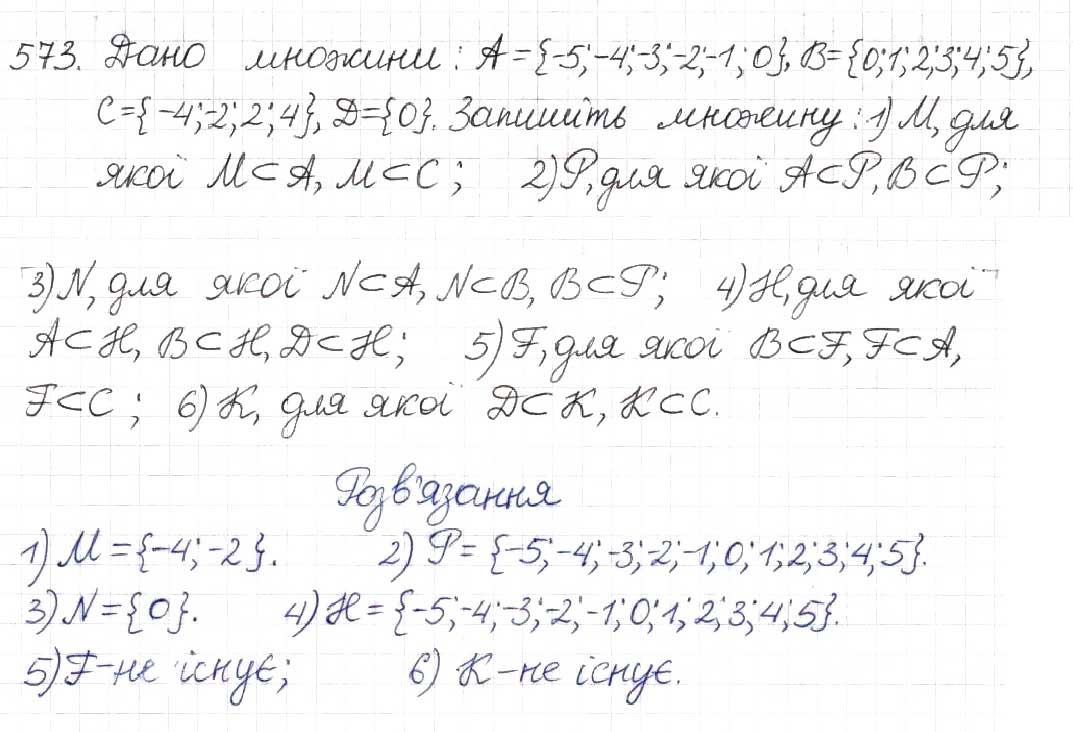 573. Дано множини: A={-5;-4;-3;-2;-1;0}, B={0;1;2;3;4;5},
C={-4;-2;2;4}, D={0}. Запишіть множину: 1) M, для
якої M⊂A, M⊂C; 2) P, для якої A⊂P, B⊂P;
3) N, для якої N⊂A, N⊂B, B⊂P; 4) H, для якої
A⊂H, B⊂H, D⊂H; 5) F, для якої B⊂F, F⊂A,
F⊂C; 6) K, для якої D⊂K, K⊂C.
Розв'язання
1) M={-4;-2}. 2) P={-5;-4;-3;-2;-1;0;1;2;3;4;5}.
3) N={0}. 4) H={-5;-4;-3;-2;-1;0;1;2;3;4;5}.
5) F-не існує; 6) K-не існує.